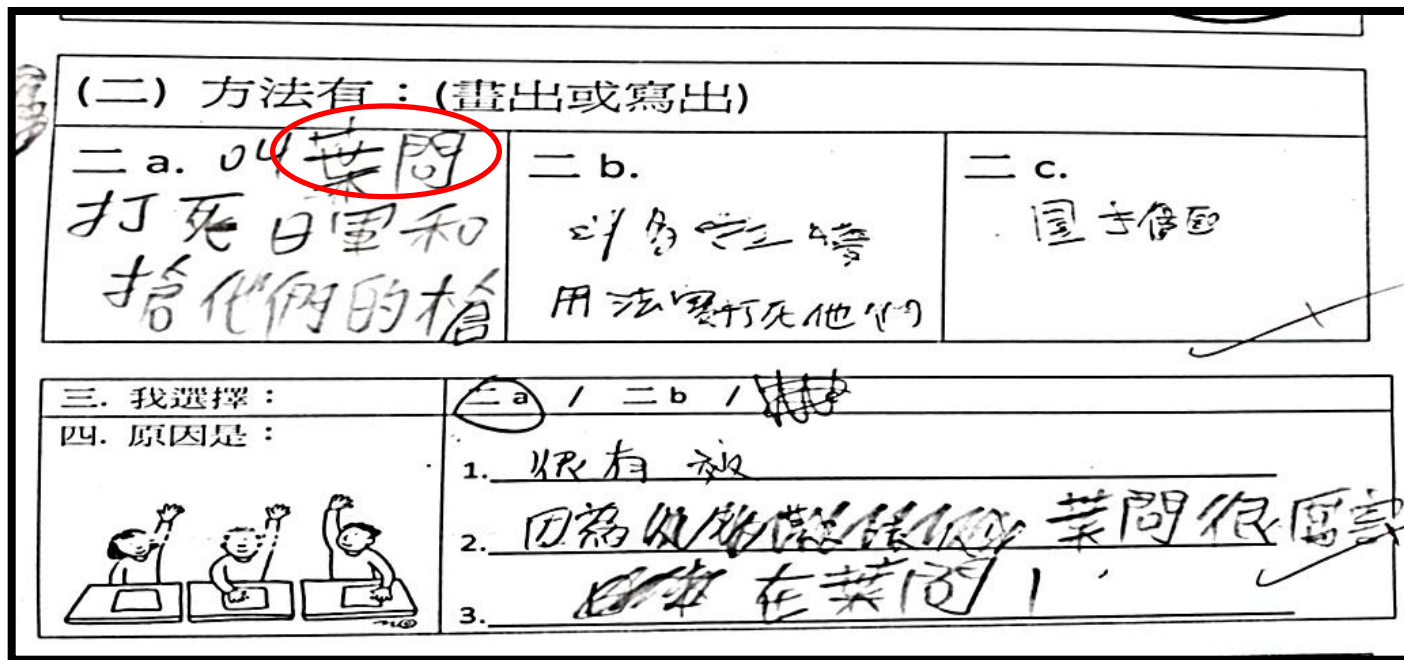 (二) 方法有：(畫出或寫出)
二 a. 04葉問
打死日軍和
搶他們的槍
二 b.
用法寶打死他們
二 c.
三. 我選擇：
二 a / 二 b /
四. 原因是：
1. 很有效
2. 因為 葉問很厲害
3. 在葉問1